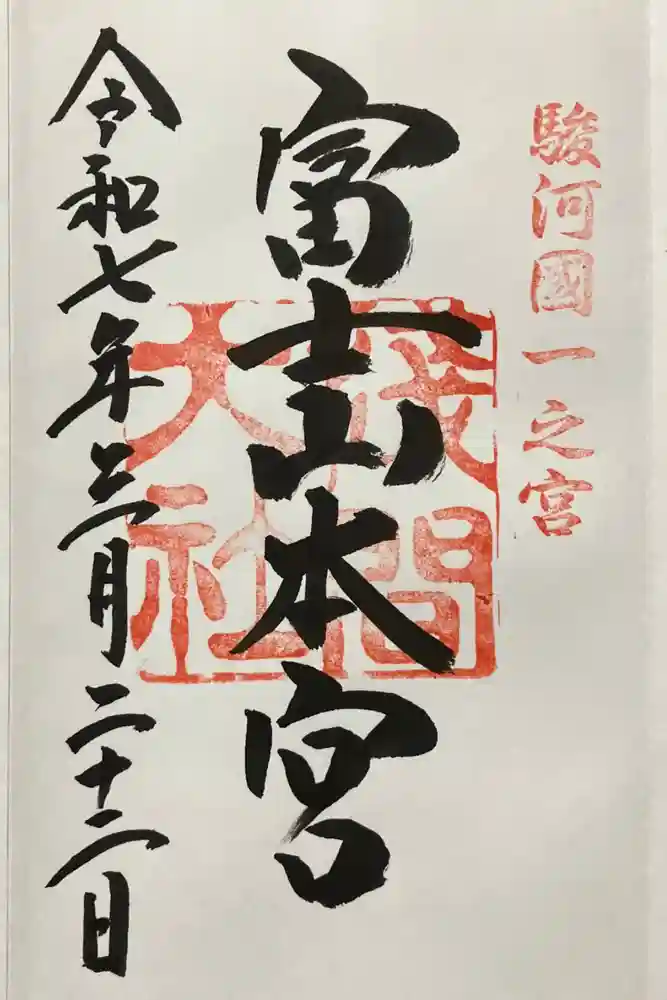 駿河國一之宮
富士山本宮
浅間
大社
令和七年三月二十二日